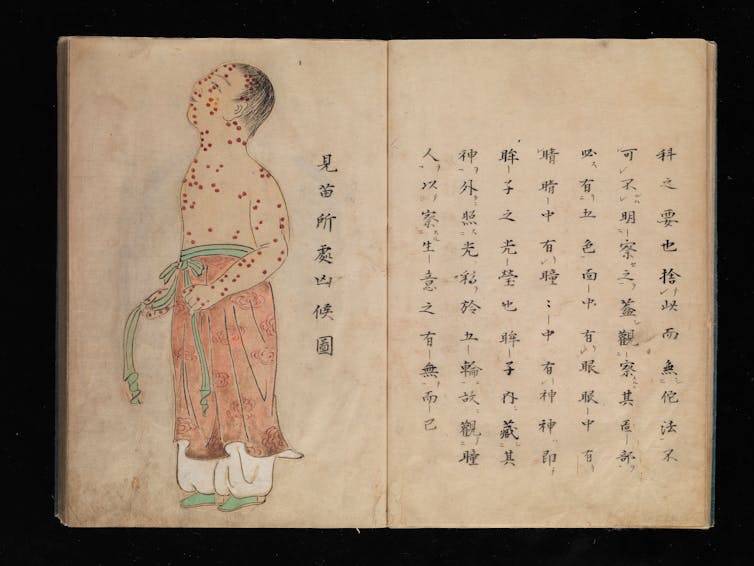 科之要也捨此而無佗法不
可不明察之蓋觀察其部
必有五色面中有眼眼中有
睛睛中有瞳〻中有神神即
眸子之光瑩也眸子内藏其
神外照光彩於五輪故觀瞳
人以察生意之有無而已
見苗所處凶候圖